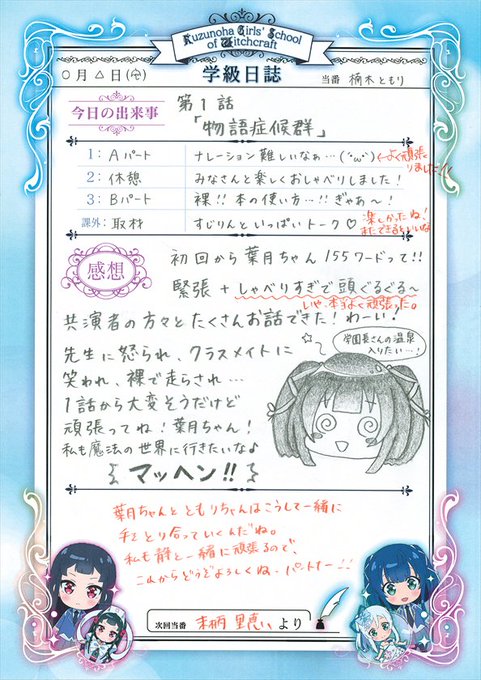 Kuzunoha Girls' School
of Witchcraft
学級日誌
○月△日(㊎)
当番 楠木ともり
今日の出来事
第1話
「物語症候群」
1: Aパート ナレーション難しいなぁ…(´･ω･`) ←よく頑張りました!!
2: 休憩 みなさんと楽しくおしゃべりしました!
3: Bパート 裸!! 本の使い方…!! ぎゃあ〜!
課外: 取材 すじりんといっぱいトーク♡ 楽しかったね!またできるといいな
感想
初回から葉月ちゃん155ワードって!!
緊張+しゃべりすぎで頭ぐるぐる〜
いや、本当よく頑張った。
共演者の方々とたくさんお話できた!わーい!
先生に怒られ、クラスメイトに
笑われ、裸で走らされ…
1話から大変そうだけど
頑張ってね!葉月ちゃん!
私も魔法の世界に行きたいな♪
マッヘン!!
学園長さんの温泉
入りたい…!
葉月ちゃんとともりちゃんはこうして一緒に
手をとり合っていくんだね。
私も静と一緒に頑張るので、
これからどうぞよろしくね、パートナー!!
次回当番 末柄里恵 より